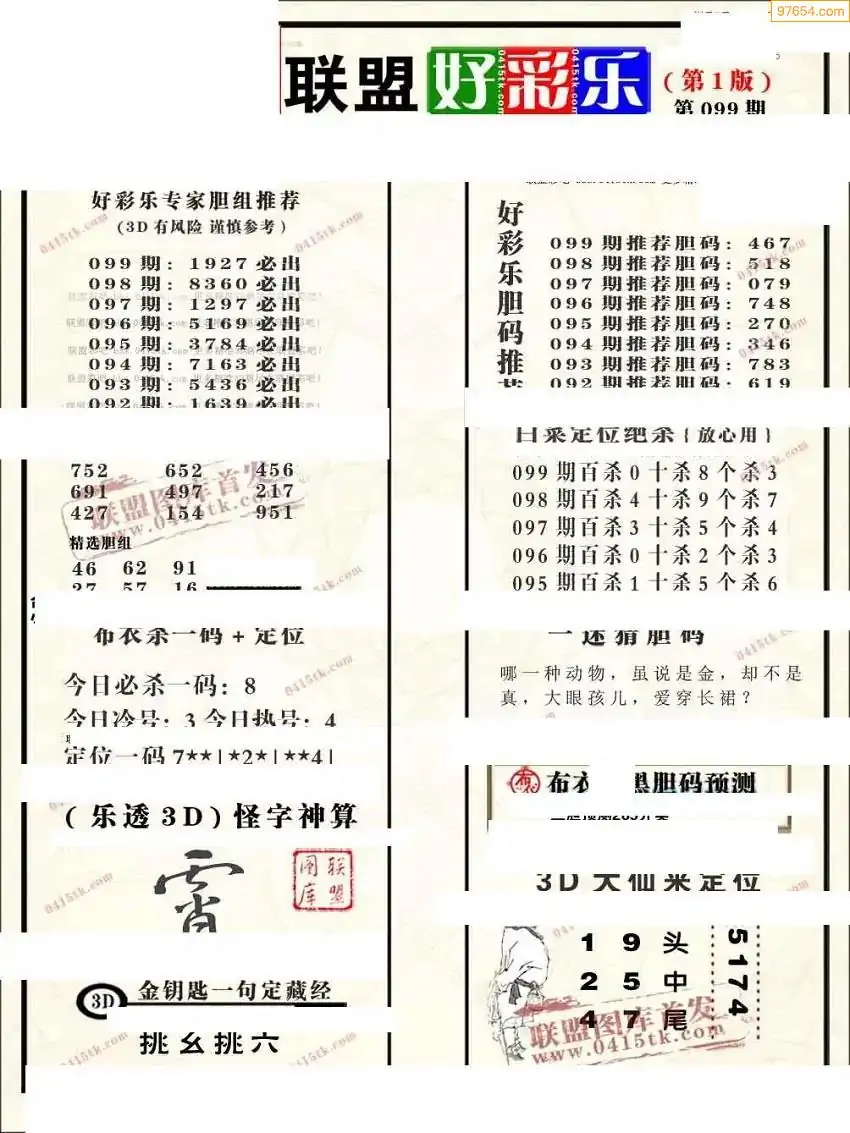 97654.com
联盟好彩乐
(第1版)
第099期
好彩乐专家胆组推荐
(3D有风险 谨慎参考)
099期: 1927必出
098期: 8360必出
097期: 1297必出
096期: 5169必出
095期: 3784必出
094期: 7163必出
093期: 5436必出
092期: 1639必出
752 652 456
691 497 217
427 154 951
精选胆组
46 62 91
27 57 16
布衣杀一码+定位
今日必杀一码: 8
今日冷号: 3 今日热号: 4
定位一码 7★★|★2★|★★4|
(乐透3D)怪字神算
联盟图库
3D 金钥匙一句定藏经
挑幺挑六
好彩乐胆码推荐
099期推荐胆码: 467
098期推荐胆码: 518
097期推荐胆码: 079
096期推荐胆码: 748
095期推荐胆码: 270
094期推荐胆码: 346
093期推荐胆码: 783
092期推荐胆码: 619
白菜定位绝杀{放心用}
099期百杀0十杀8个杀3
098期百杀4十杀9个杀7
097期百杀3十杀5个杀4
096期百杀0十杀2个杀3
095期百杀1十杀5个杀6
一迷猜胆码
哪一种动物，虽说是金，却不是
真，大眼孩儿，爱穿长裙？
布衣 胆码预测
3D大仙来定位
1 9 头
2 5 中
4 7 尾
5174
联盟图库首发
www.0415tk.com